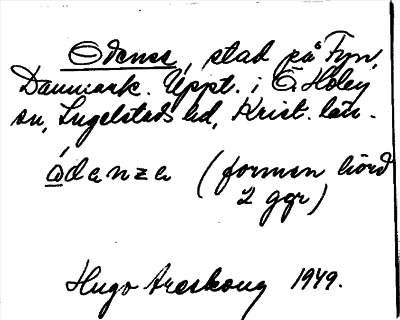 Odense, stad på Fyn,
Danmark. Uppt. i Ö. Hoby
sn, Ingelstads hd, Krist. län.
ódense (formen hörd
2 ggr)
Hugo Areskoug 1949.